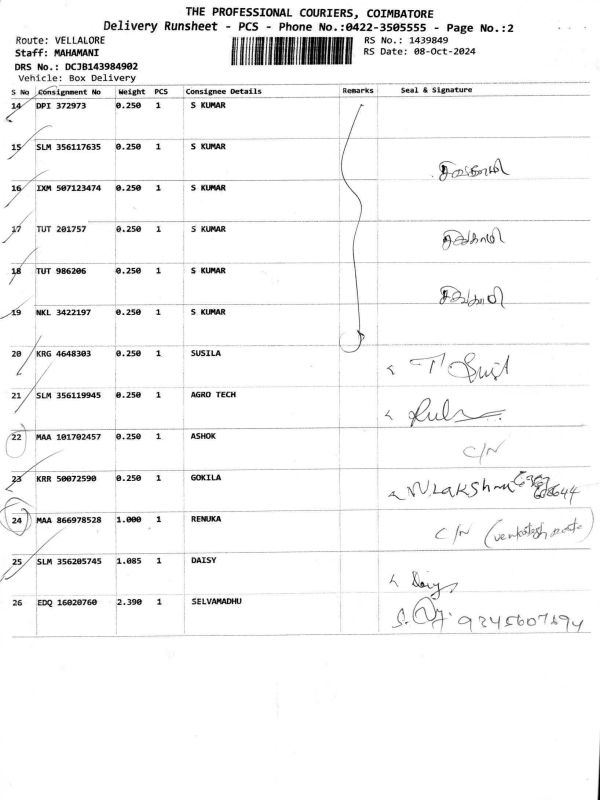 THE PROFESSIONAL COURIERS, COIMBATORE
Delivery Runsheet - PCS - Phone No.:0422-3505555 - Page No.:2
Route: VELLALORE RS No.: 1439849
Staff: MAHAMANI RS Date: 08-Oct-2024
DRS No.: DCJB143984902
Vehicle: Box Delivery
S No Consignment No Weight PCS Consignee Details Remarks Seal & Signature
14 DPI 372973 0.250 1 S KUMAR
15 SLM 356117635 0.250 1 S KUMAR
16 IXM 507123474 0.250 1 S KUMAR
17 TUT 201757 0.250 1 S KUMAR
18 TUT 986206 0.250 1 S KUMAR
19 NKL 3422197 0.250 1 S KUMAR
20 KRG 4648303 0.250 1 SUSILA
21 SLM 356119945 0.250 1 AGRO TECH
22 MAA 101702457 0.250 1 ASHOK C/N
23 KRR 50072590 0.250 1 GOKILA
24 MAA 866978528 1.000 1 RENUKA C/N
25 SLM 356205745 1.085 1 DAISY Daisy
26 EDQ 16020760 2.390 1 SELVAMADHU